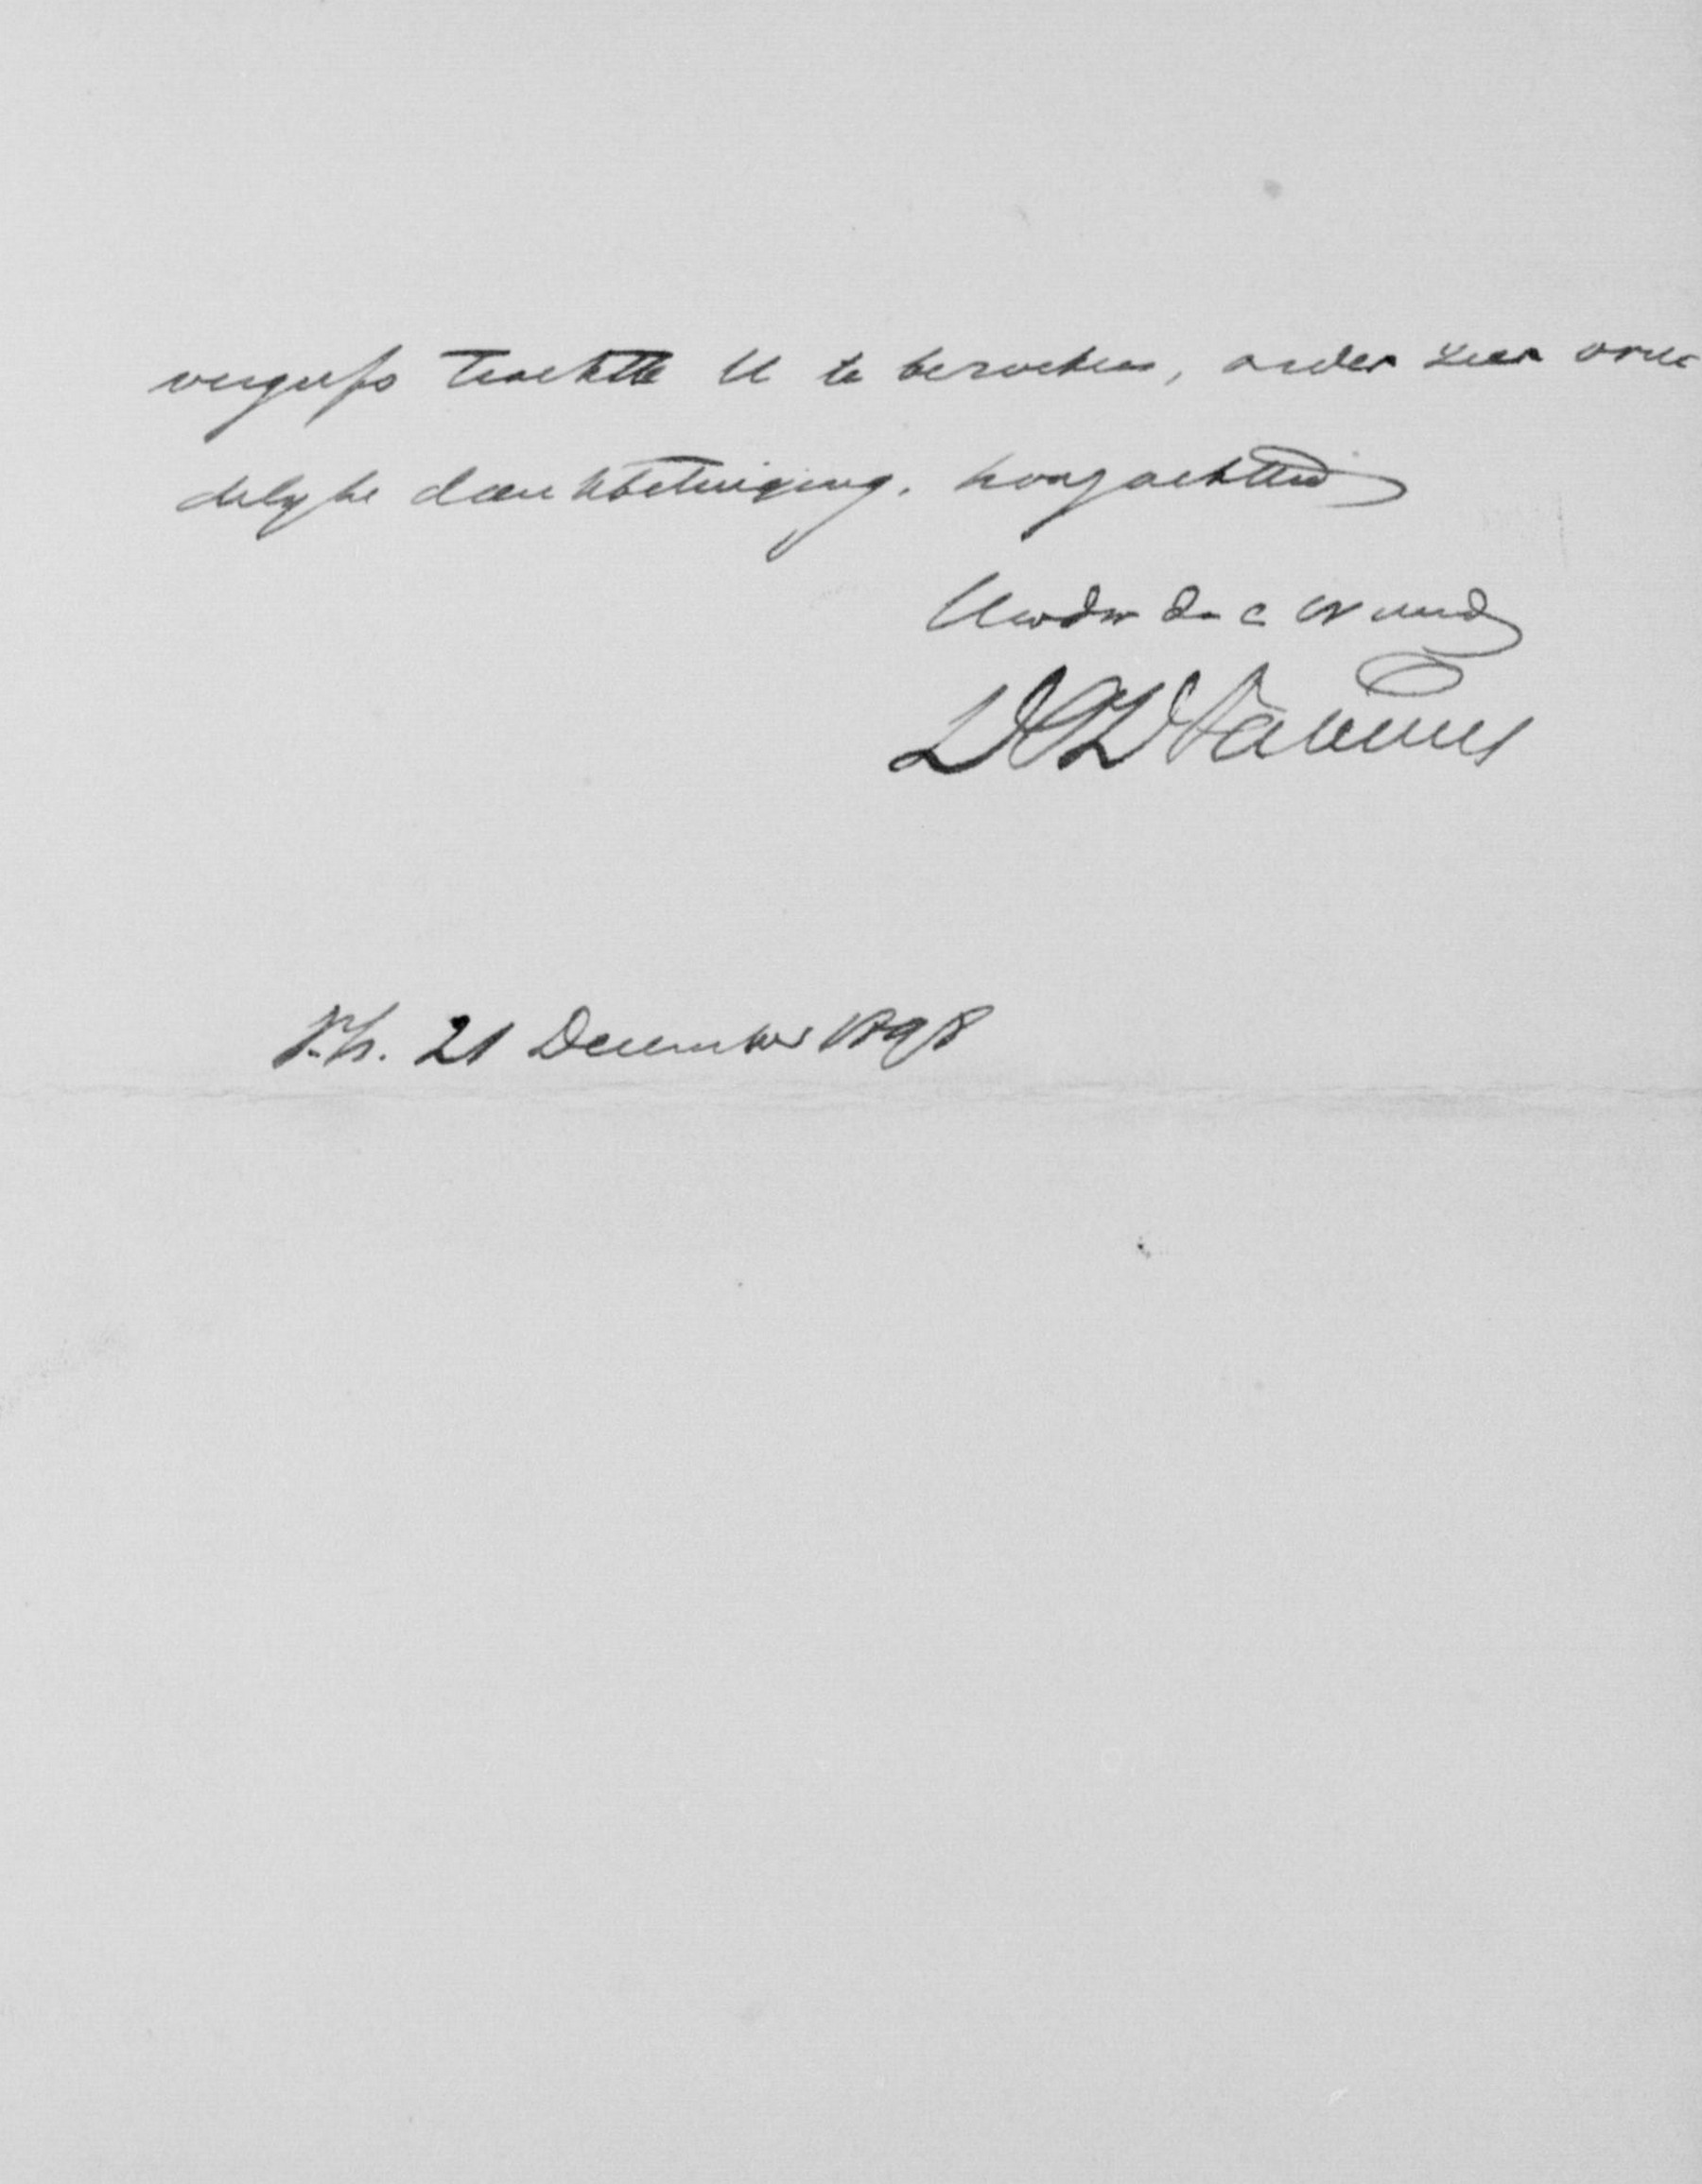 vergeefs trachtte U te bezoeken, onder zeer vrien
delijke dankbetuiging. hoogachtend
Uwdw d. e vriend
21 December 1898